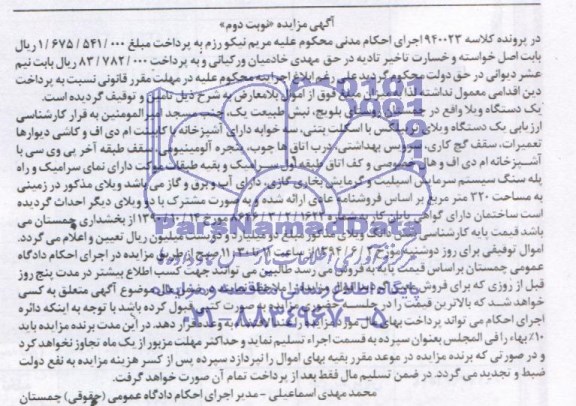 آگهی مزایده «نوبت دوم»
در پرونده کلاسه ۹۴۰۰۲۳ اجرای احکام مدنی محکوم علیه مریم نیکو رزم به پرداخت مبلغ ۱/۶۷۵/۵۴۱/۰۰۰ ریال
بابت اصل خواسته و خسارت تاخیر تادیه در حق مهدی خادمیان ورکیانی و به پرداخت ۸۳/۷۸۲/۰۰۰ ریال بابت نیم
عشر دیوانی در حق دولت محکوم گردید علی رغم ابلاغ اجراییه محکوم علیه در مهلت مقرر قانونی نسبت به پرداخت
دین اقدامی معمول نداشته لذا فوق از اموال بلامعارض به شرح ذیل تامین و توقیف گردیده است.
یک دستگاه ویلا واقع در بلویج، نبش طبیعت یک، جنب مسجد امیرالمومنین به قرار کارشناسی
ارزیابی یک دستگاه ویلای با اسکلت بتنی، سه خوابه دارای آشپزخانه با کابینت ام دی اف و کاشی دیوارها
تعمیرات، سقف گچ کاری، سرویس بهداشتی، درب اتاق ها چوب، پنجره آلومینیومی، سقف طبقه آخر پی وی سی با
آشپزخانه ام دی اف و هال خصوصی و کف اتاق طبقه اول سرامیک و بقیه طبقات موکت دارای نمای سرامیک و راه
پله سنگ سیستم سرمایش اسپلیت و گرمایش بخاری گازی، دارای آب و برق و گاز می باشد ویلای مذکور در زمینی
به مساحت ۳۲۰ متر مربع بر اساس فروشنامه عادی ارائه شده و به صورت مشترک با دو ویلای دیگر احداث گردیده
است ساختمان دارای گواهی پایان کار به شماره مورخ از بخشداری چمستان می
باشد قیمت پایه کارشناسی ویلای مذکور مبلغ میلیارد و دویست میلیون ریال تعیین و اعلام می گردد.
اموال توقیفی برای روز دوشنبه مورخ ساعت صبح از طریق مزایده در اجرای احکام دادگاه
عمومی چمستان بر اساس قیمت پایه به فروش می رسد طالبین می توانند جهت کسب اطلاع بیشتر در مدت پنج روز
قبل از روزی که برای فروش موضوع آگهی متعلق به کسی
خواهد شد که بالاترین قیمت را در جلسه حضوری مزایده به صورت کتبی قبول کرده باشد با توجه به اینکه دائره
اجرای احکام می تواند پرداخت بهای مال به وعده قرار دهد. در این مدت برنده مزایده باید
۱۰٪ بهاء را فی المجلس بعنوان سپرده به قسمت اجراء تسلیم نماید و حداکثر مهلت مزبور از یک ماه تجاوز نخواهد کرد
و در صورتی که برنده مزایده در موعد مقرر بقیه بهای اموال را نپردازد سپرده پس از کسر هزینه مزایده به نفع دولت
ضبط و تجدید می گردد. در ضمن تسلیم مال فقط بعد از پرداخت تمام آن صورت خواهد گرفت.
محمد مهدی اسماعیلی - مدیر اجرای احکام دادگاه عمومی (حقوقی) چمستان
ParsNamadData
پایگاه اطلاع رسانی مناقصه و مزایده
۰۲۱-۸۸۳۴۹۶۷۰-۵